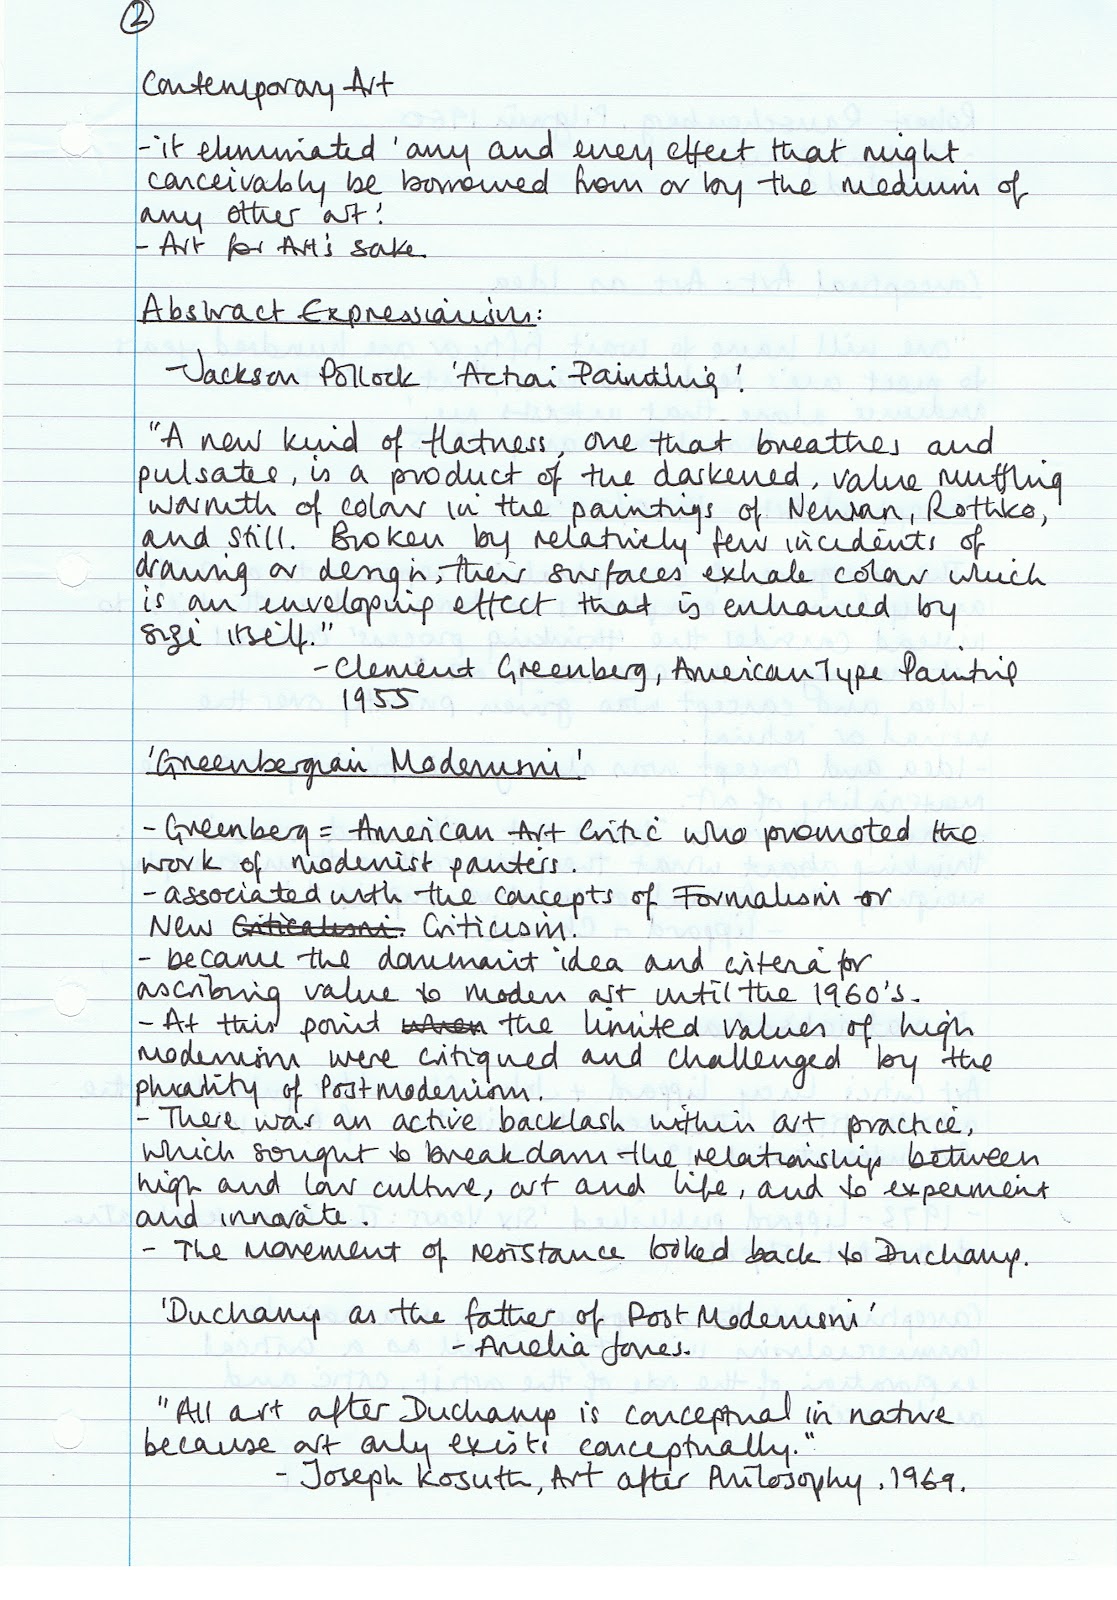 2
Contemporary Art
- it eliminated 'any and every effect that might
conceivably be borrowed from or by the medium of
any other art'.
- Art for Art's sake.
Abstract Expressionism:
- Jackson Pollock 'Action Painting'.
"A new kind of flatness, one that breathes and
pulsates, is a product of the darkened, value muffling
warmth of colour in the paintings of Newman, Rothko,
and Still. Broken by relatively few incidents of
drawing or design, their surfaces exhale colour which
is an enveloping effect that is enhanced by
size itself."
- Clement Greenberg, American Type Painting
1955
'Greenbergian Modernism'
- Greenberg = American Art Critic who promoted the
work of modernist painters.
- associated with the concepts of Formalism or
New Criticalism. Criticism.
- became the dominant idea and criteria for
ascribing value to modern art until the 1960's.
- At this point when the limited values of high
modernism were critiqued and challenged by the
plurality of Postmodernism.
- There was an active backlash within art practice,
which sought to break down the relationship between
high and low culture, art and life, and to experiment
and innovate.
- The movement of resistance looked back to Duchamp.
'Duchamp as the father of Post Modernism'
- Amelia Jones.
"All art after Duchamp is conceptual in nature
because art only exists conceptually."
- Joseph Kosuth, Art after Philosophy, 1969.